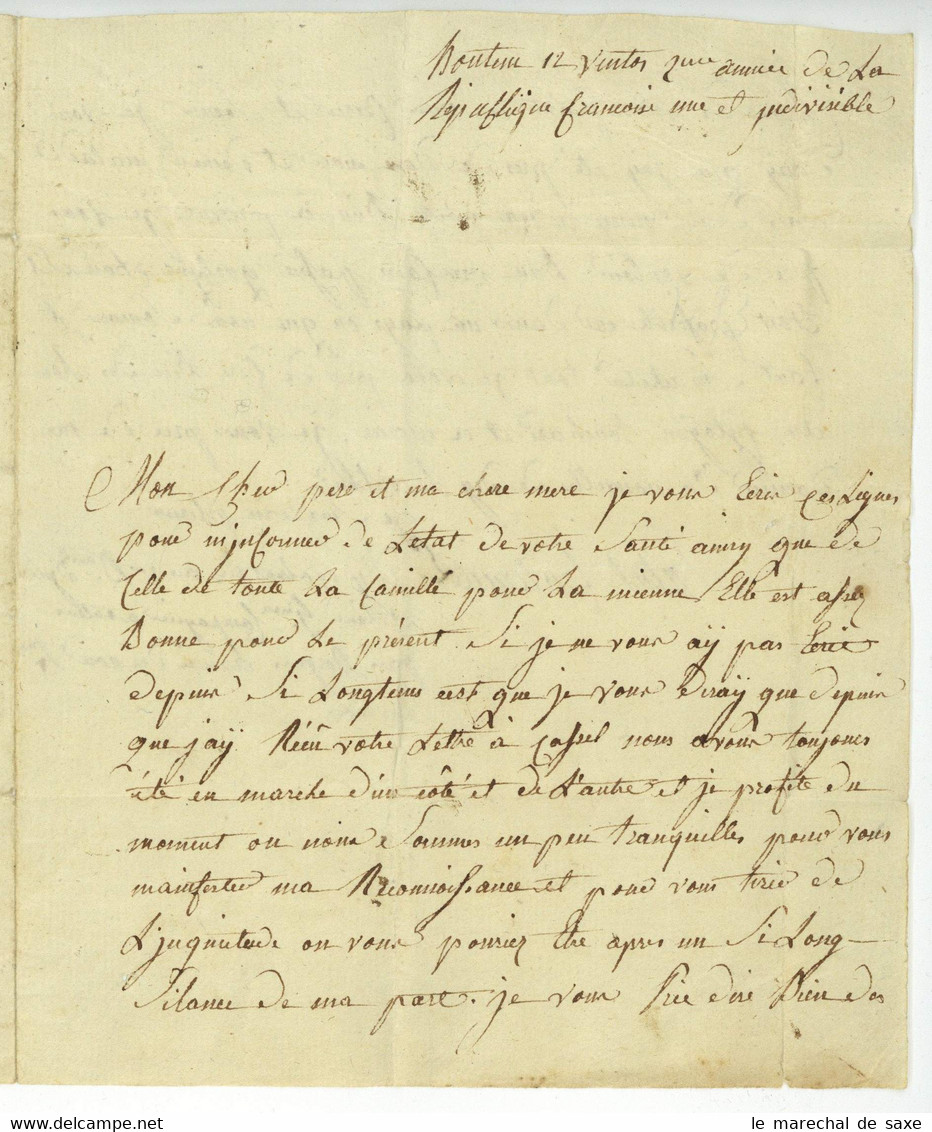 12 vintos 2me année de La
Republique francoise une et jndivisible
Mon Cher pere et ma chere mere je vous Ecris ces Lignes
pour m'jnformer de Letat de votre Santé ainsy que de
Celle de toute La famille pour La mienne Elle est assez
Bonne pour Le présent Si je ne vous aÿ pas Ecrit
depuis Si Longtems c'est que je vous diraÿ que depuis
que jaÿ Recu votre Lettre à Cassel nous avons toujours
été en marche d'un côté et de L'autre et je profite du
moment ou nous Sommes un peu tranquilles pour vous
mainfester ma Reconnoissance et pour vous tirer de
L'jnquietude ou vous pouriez Etre apres un Si Long
Silance de ma part. je vous Prie dire Bien des
le marechal de saxe